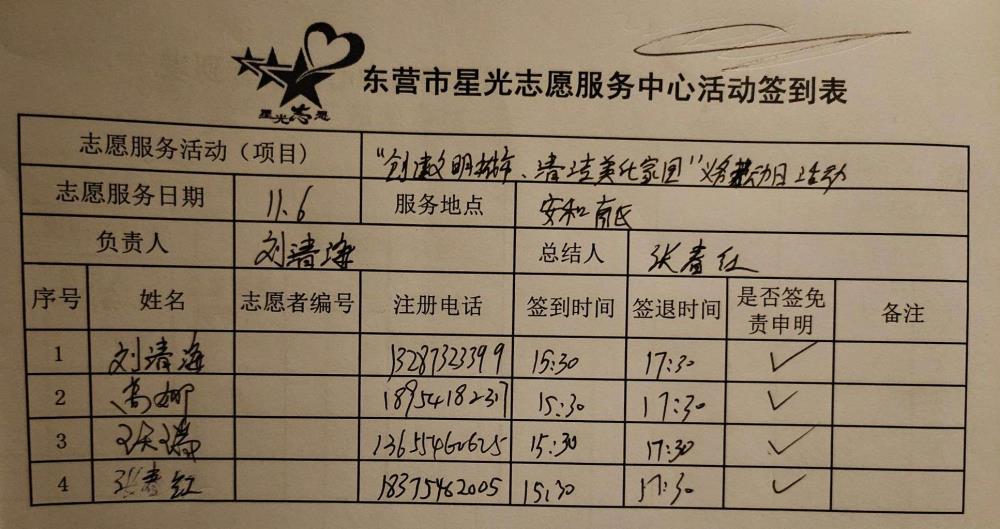 星光志愿
东营市星光志愿服务中心活动签到表
志愿服务活动（项目） "创建文明城市、清洁美化家园"义务劳动日活动
志愿服务日期 11.6 服务地点 安和南区
负责人 刘清海 总结人 张春红
序号 姓名 志愿者编号 注册电话 签到时间 签退时间 是否签免责申明 备注
1 刘清海 13287323399 15:30 17:30 ✓
2 高娜 18954182317 15:30 17:30 ✓
3 13655462625 15:30 17:30 ✓
4 张春红 18375462005 15:30 17:30 ✓